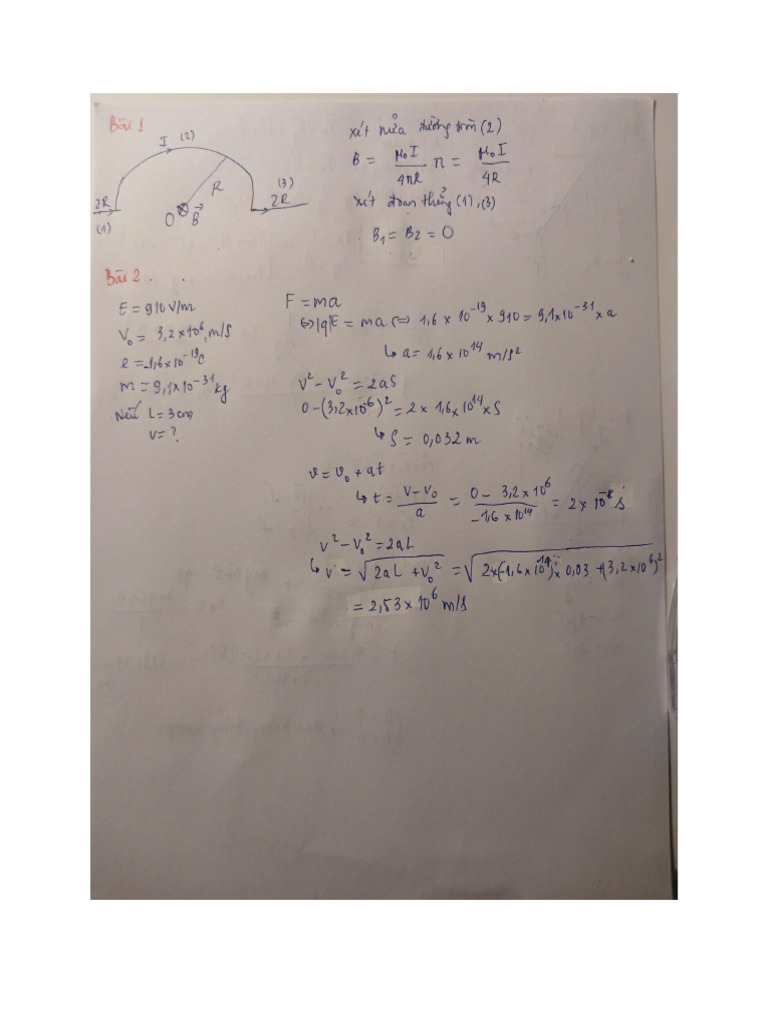 Bài 1
I (2)
R
2R
(1)
(3)
2R
O B⃗
xét nửa đường tròn (2)
B = μ₀I/4πR π = μ₀I/4R
xét đoạn thẳng (1), (3)
B₁ = B₂ = 0
Bài 2
E = 910 V/m
V₀ = 3,2×10⁶ m/s
e = -1,6×10⁻¹⁹C
m = 9,1×10⁻³¹ kg
Nếu L = 3cm
v = ?
F = ma
⇔ |q|E = ma ⇔ 1,6 × 10⁻¹⁹ × 910 = 9,1×10⁻³¹ × a
↳ a = 1,6×10¹⁴ m/s²
V² - V₀² = 2aS
0 - (3,2×10⁻⁶)² = 2 × 1,6×10¹⁴ × S
↳ S = 0,032 m
v = v₀ + at
↳ t = V - V₀/a = 0 - 3,2×10⁶/-1,6×10¹⁴ = 2×10⁻⁸ s
v² - V₀² = 2aL
↳ v = √2aL + V₀² = √2×(-1,6×10¹⁴)×0,03 + (3,2×10⁶)²
= 2,53×10⁶ m/s